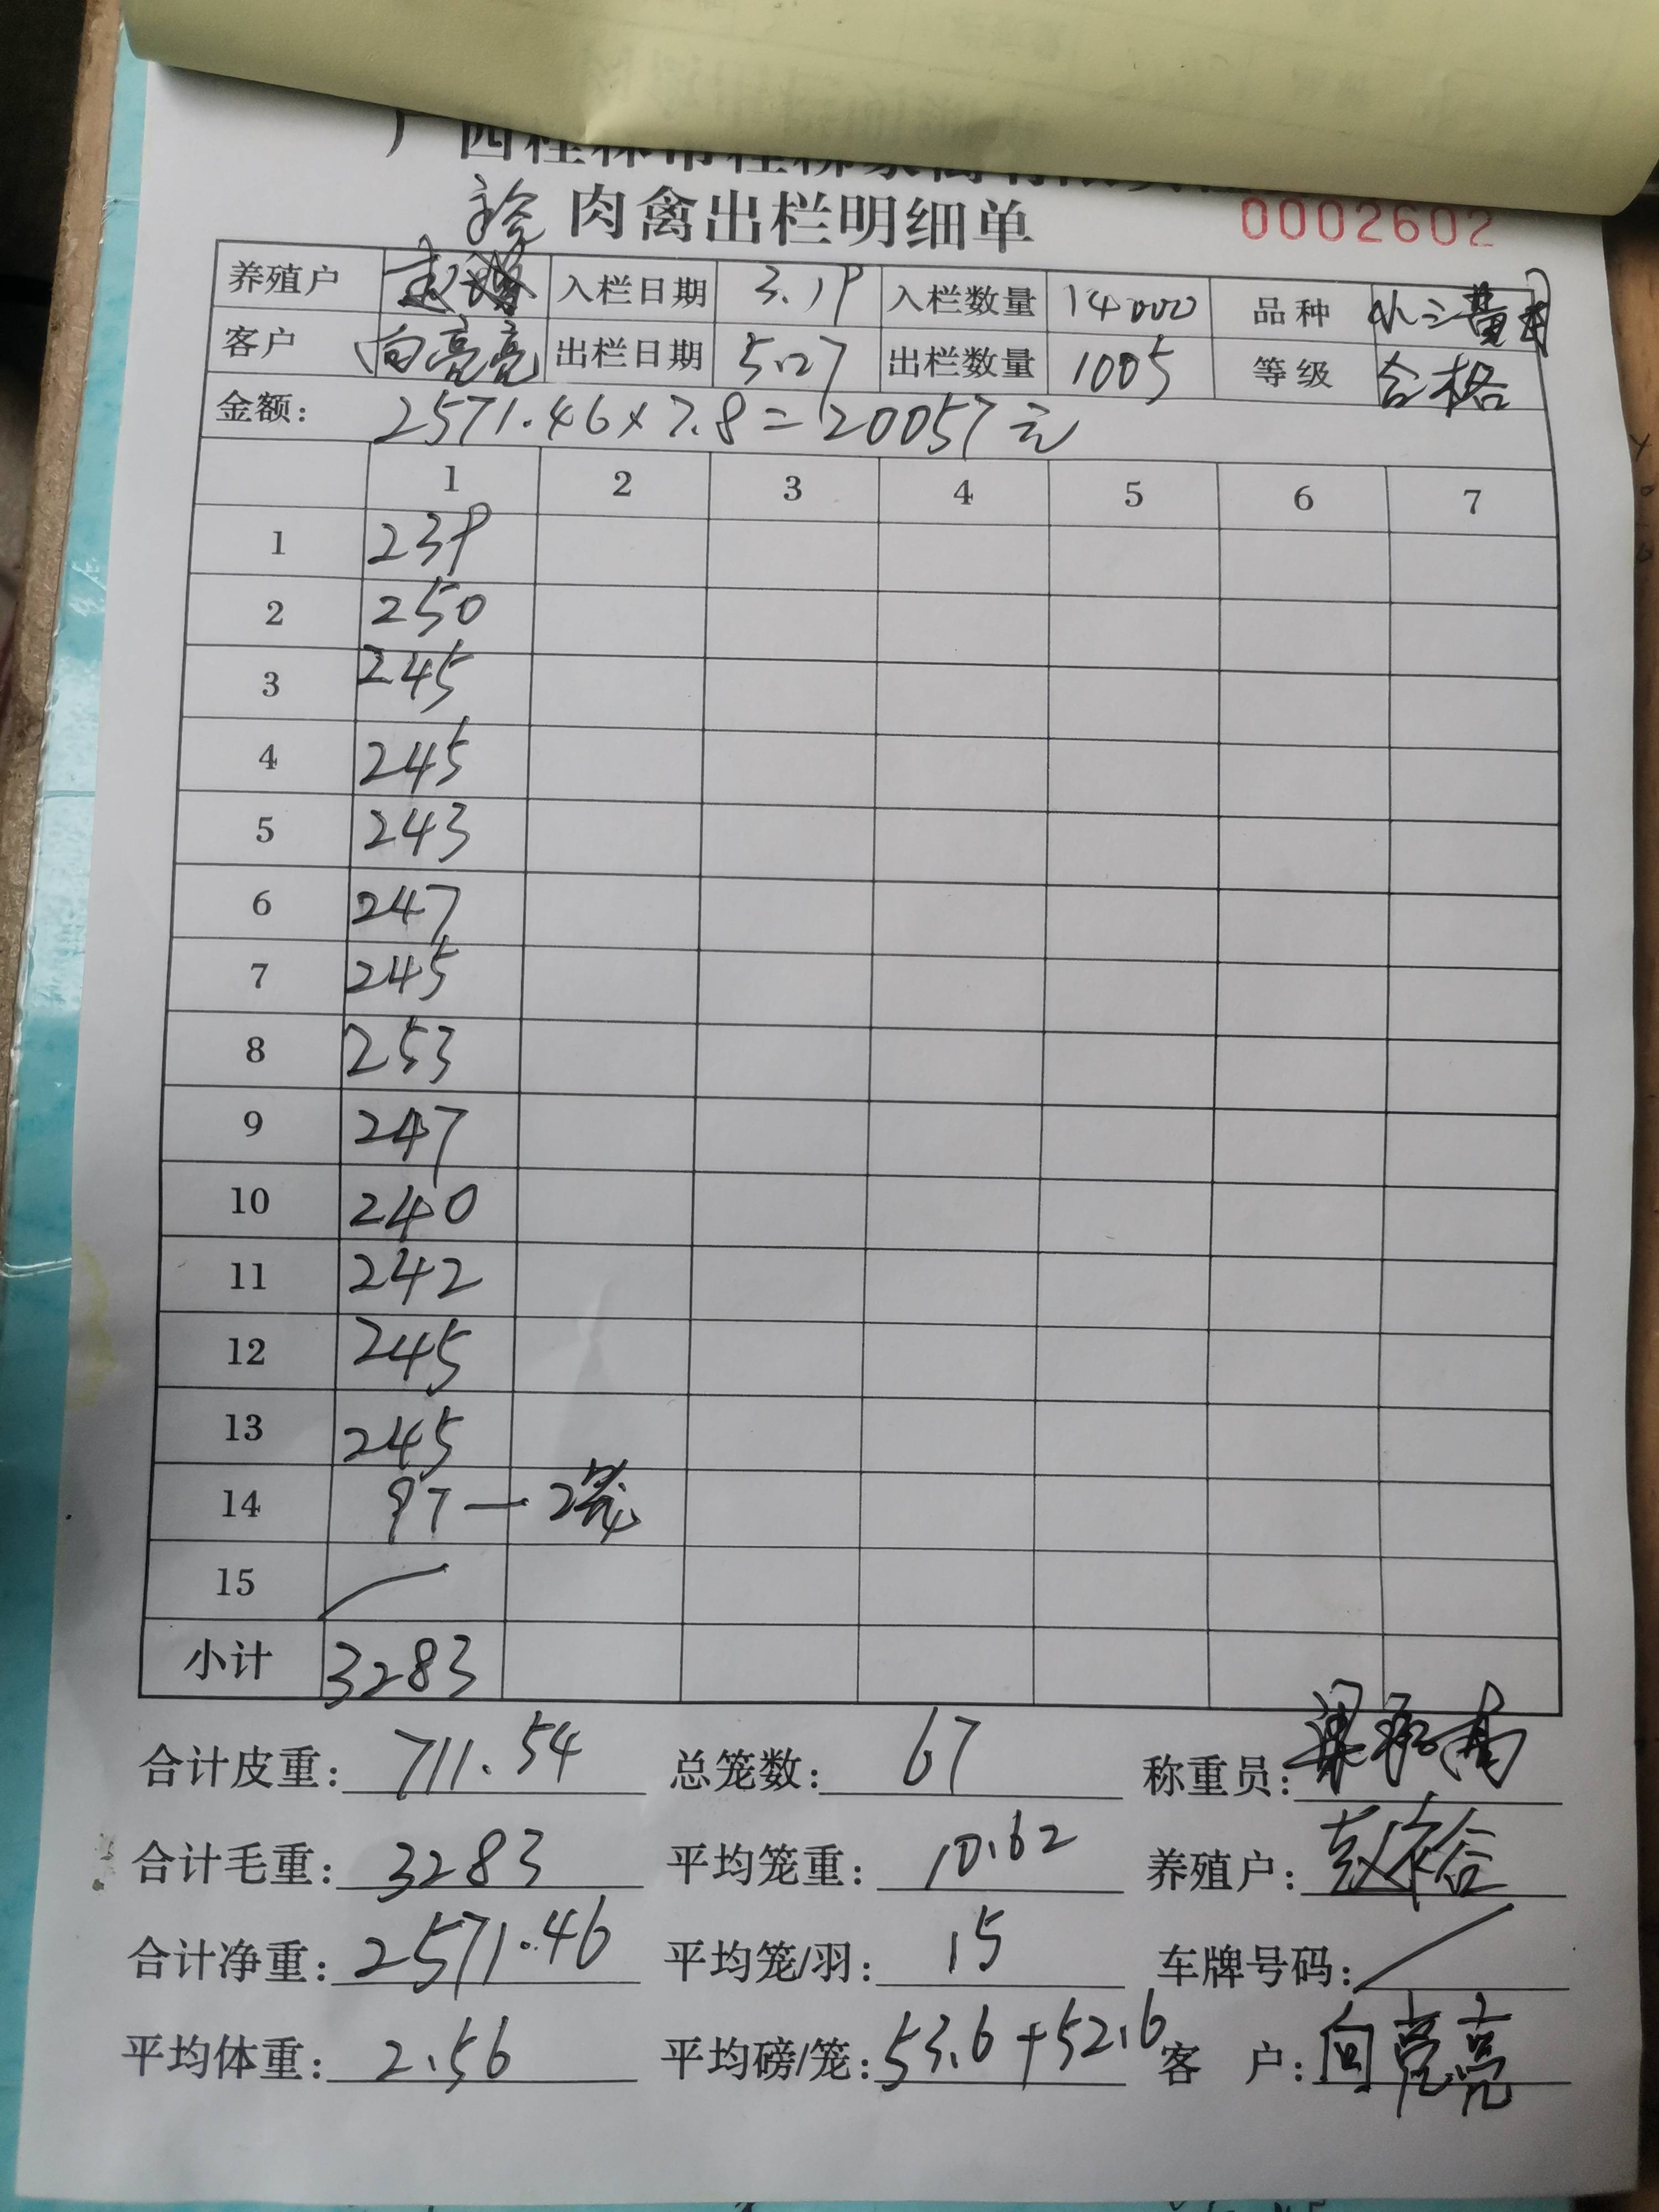 肉禽出栏明细单 0002602
养殖户 入栏日期 3.19 入栏数量 14000 品种
客户 向亮亮 出栏日期 5.27 出栏数量 1005 等级 合格
金额: 2571.46×7.8=20057元
1 2 3 4 5 6 7
1 239
2 250
3 245
4 245
5 243
6 247
7 245
8 253
9 247
10 240
11 242
12 245
13 245
14 97—2笼
15
小计 3283
合计皮重: 711.54 总笼数: 67 称重员:
合计毛重: 3283 平均笼重: 10.62 养殖户:
合计净重: 2571.46 平均笼/羽: 15 车牌号码:
平均体重: 2.56 平均磅/笼: 53.6+52.6 客 户: 向亮亮